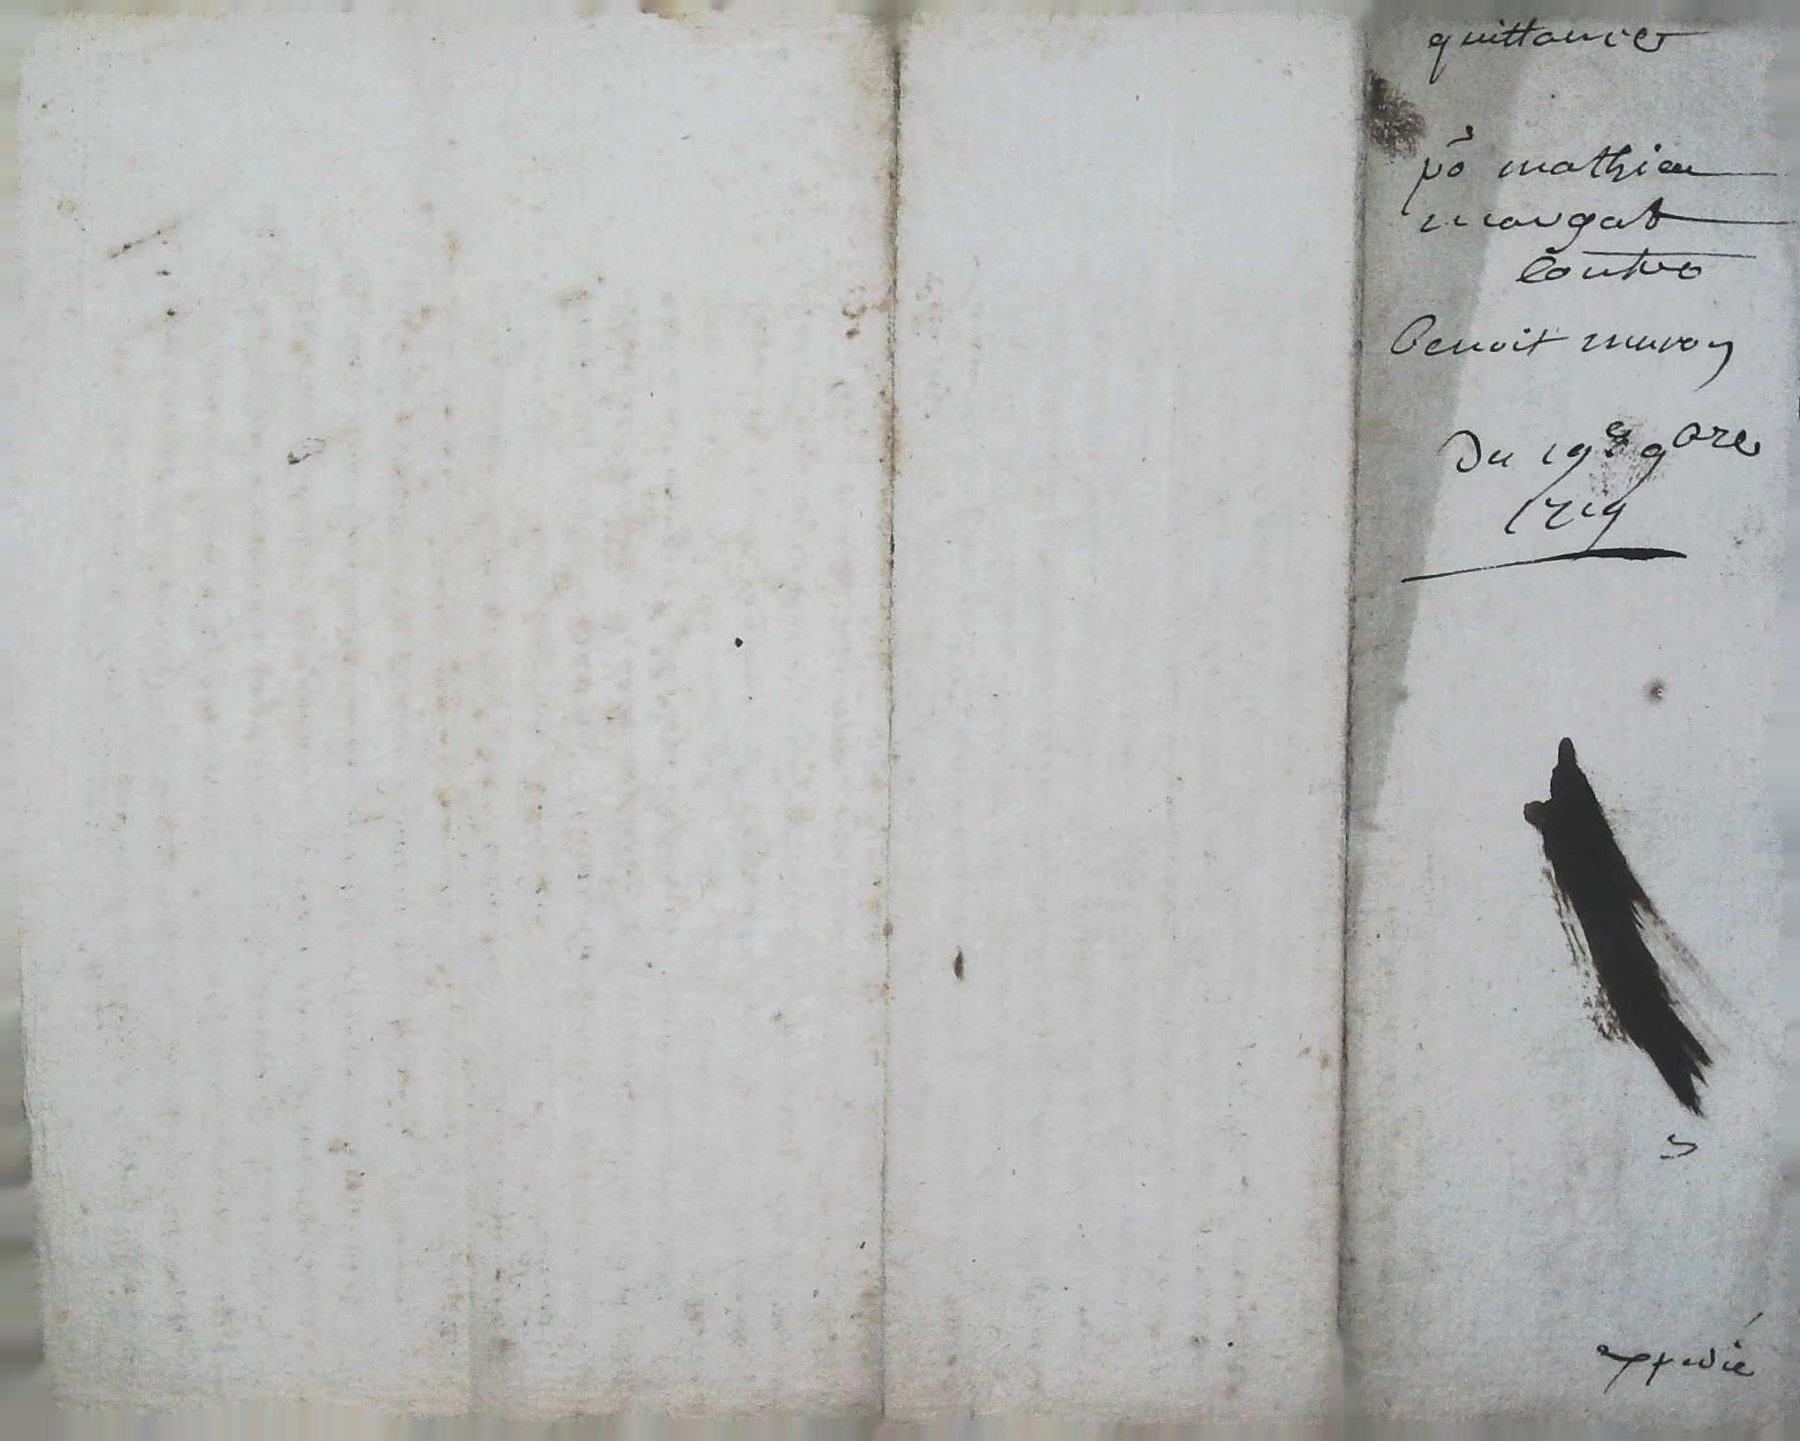 quittance
pō mathieu
mougat
Contre
Benoit muron
Du 19e 9bre
1719
expedié